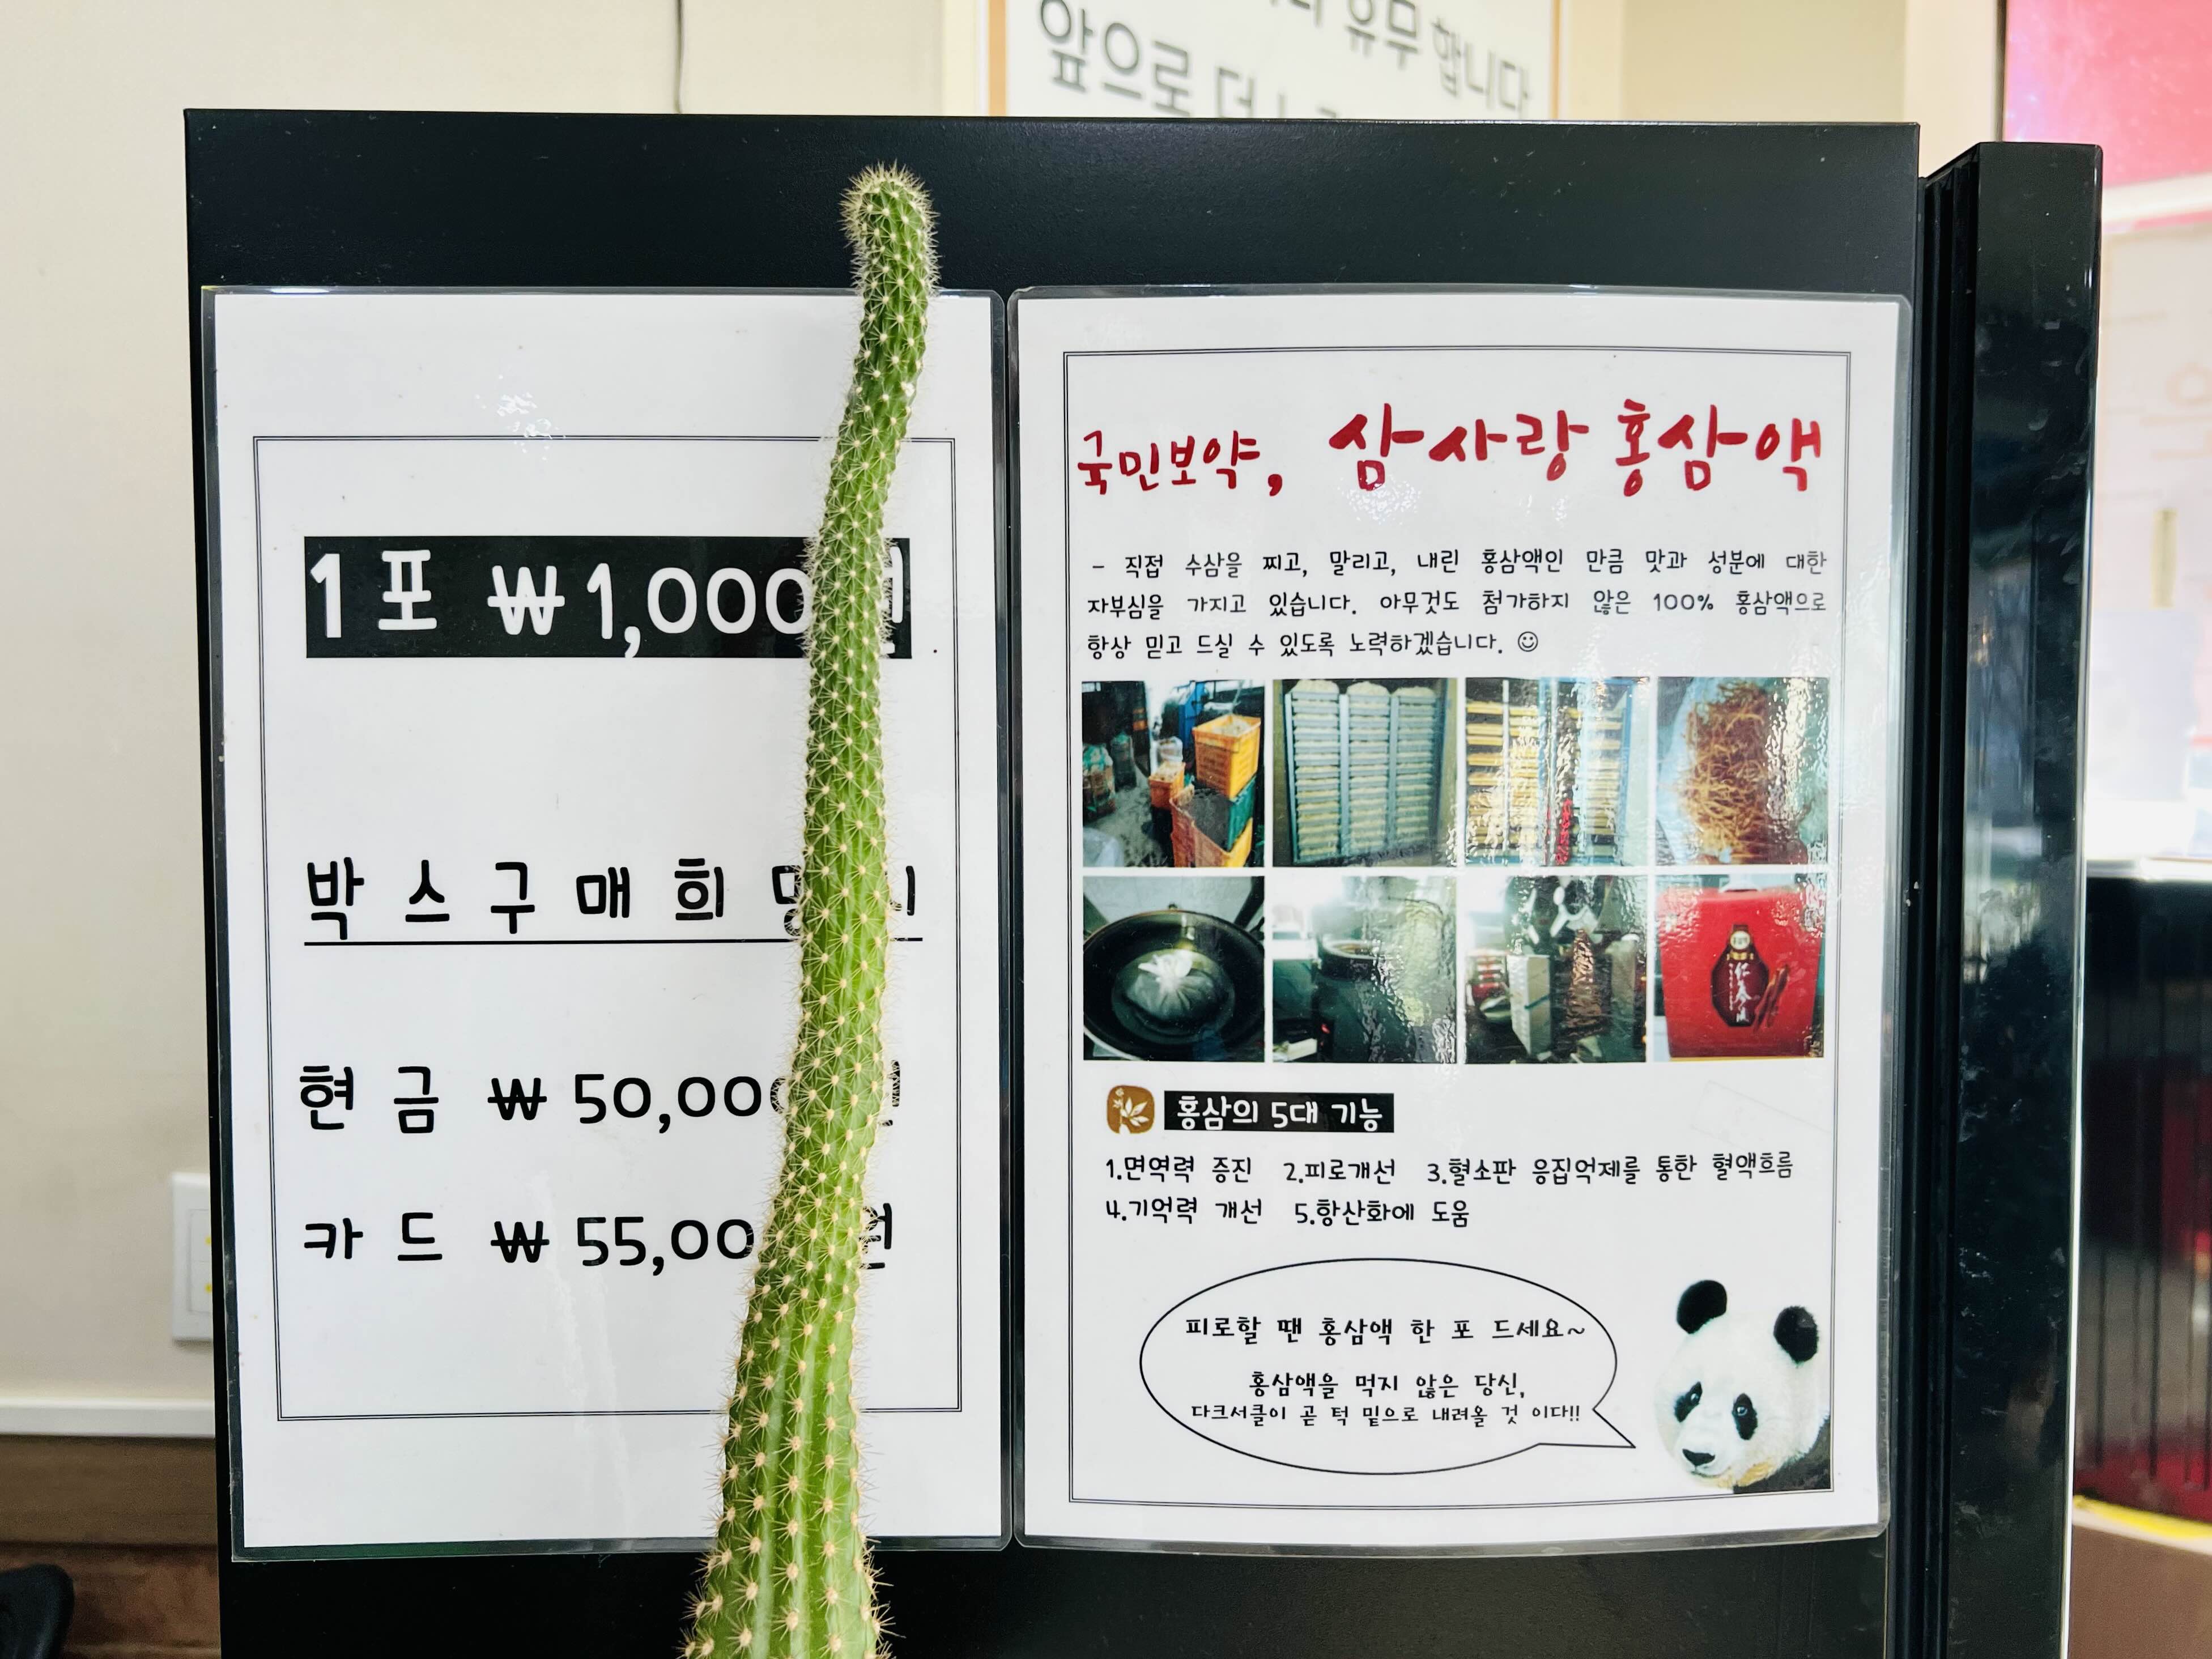 유무 합니다
앞으로
1 포 ₩1,000
박스구매희
현금 ₩ 50,00
카드 ₩ 55,00
국민보약, 삼사랑 홍삼액
- 직접 수삼을 찌고, 말리고, 내린 홍삼액인 만큼 맛과 성분에 대한
자부심을 가지고 있습니다. 아무것도 첨가하지 않은 100% 홍삼액으로
항상 믿고 드실 수 있도록 노력하겠습니다. ☺
홍삼의 5대 기능
1.면역력 증진 2.피로개선 3.혈소판 응집억제를 통한 혈액흐름
4.기억력 개선 5.항산화에 도움
피로할 땐 홍삼액 한 포 드세요~
홍삼액을 먹지 않은 당신,
다크서클이 곧 턱 밑으로 내려올 것 이다!!